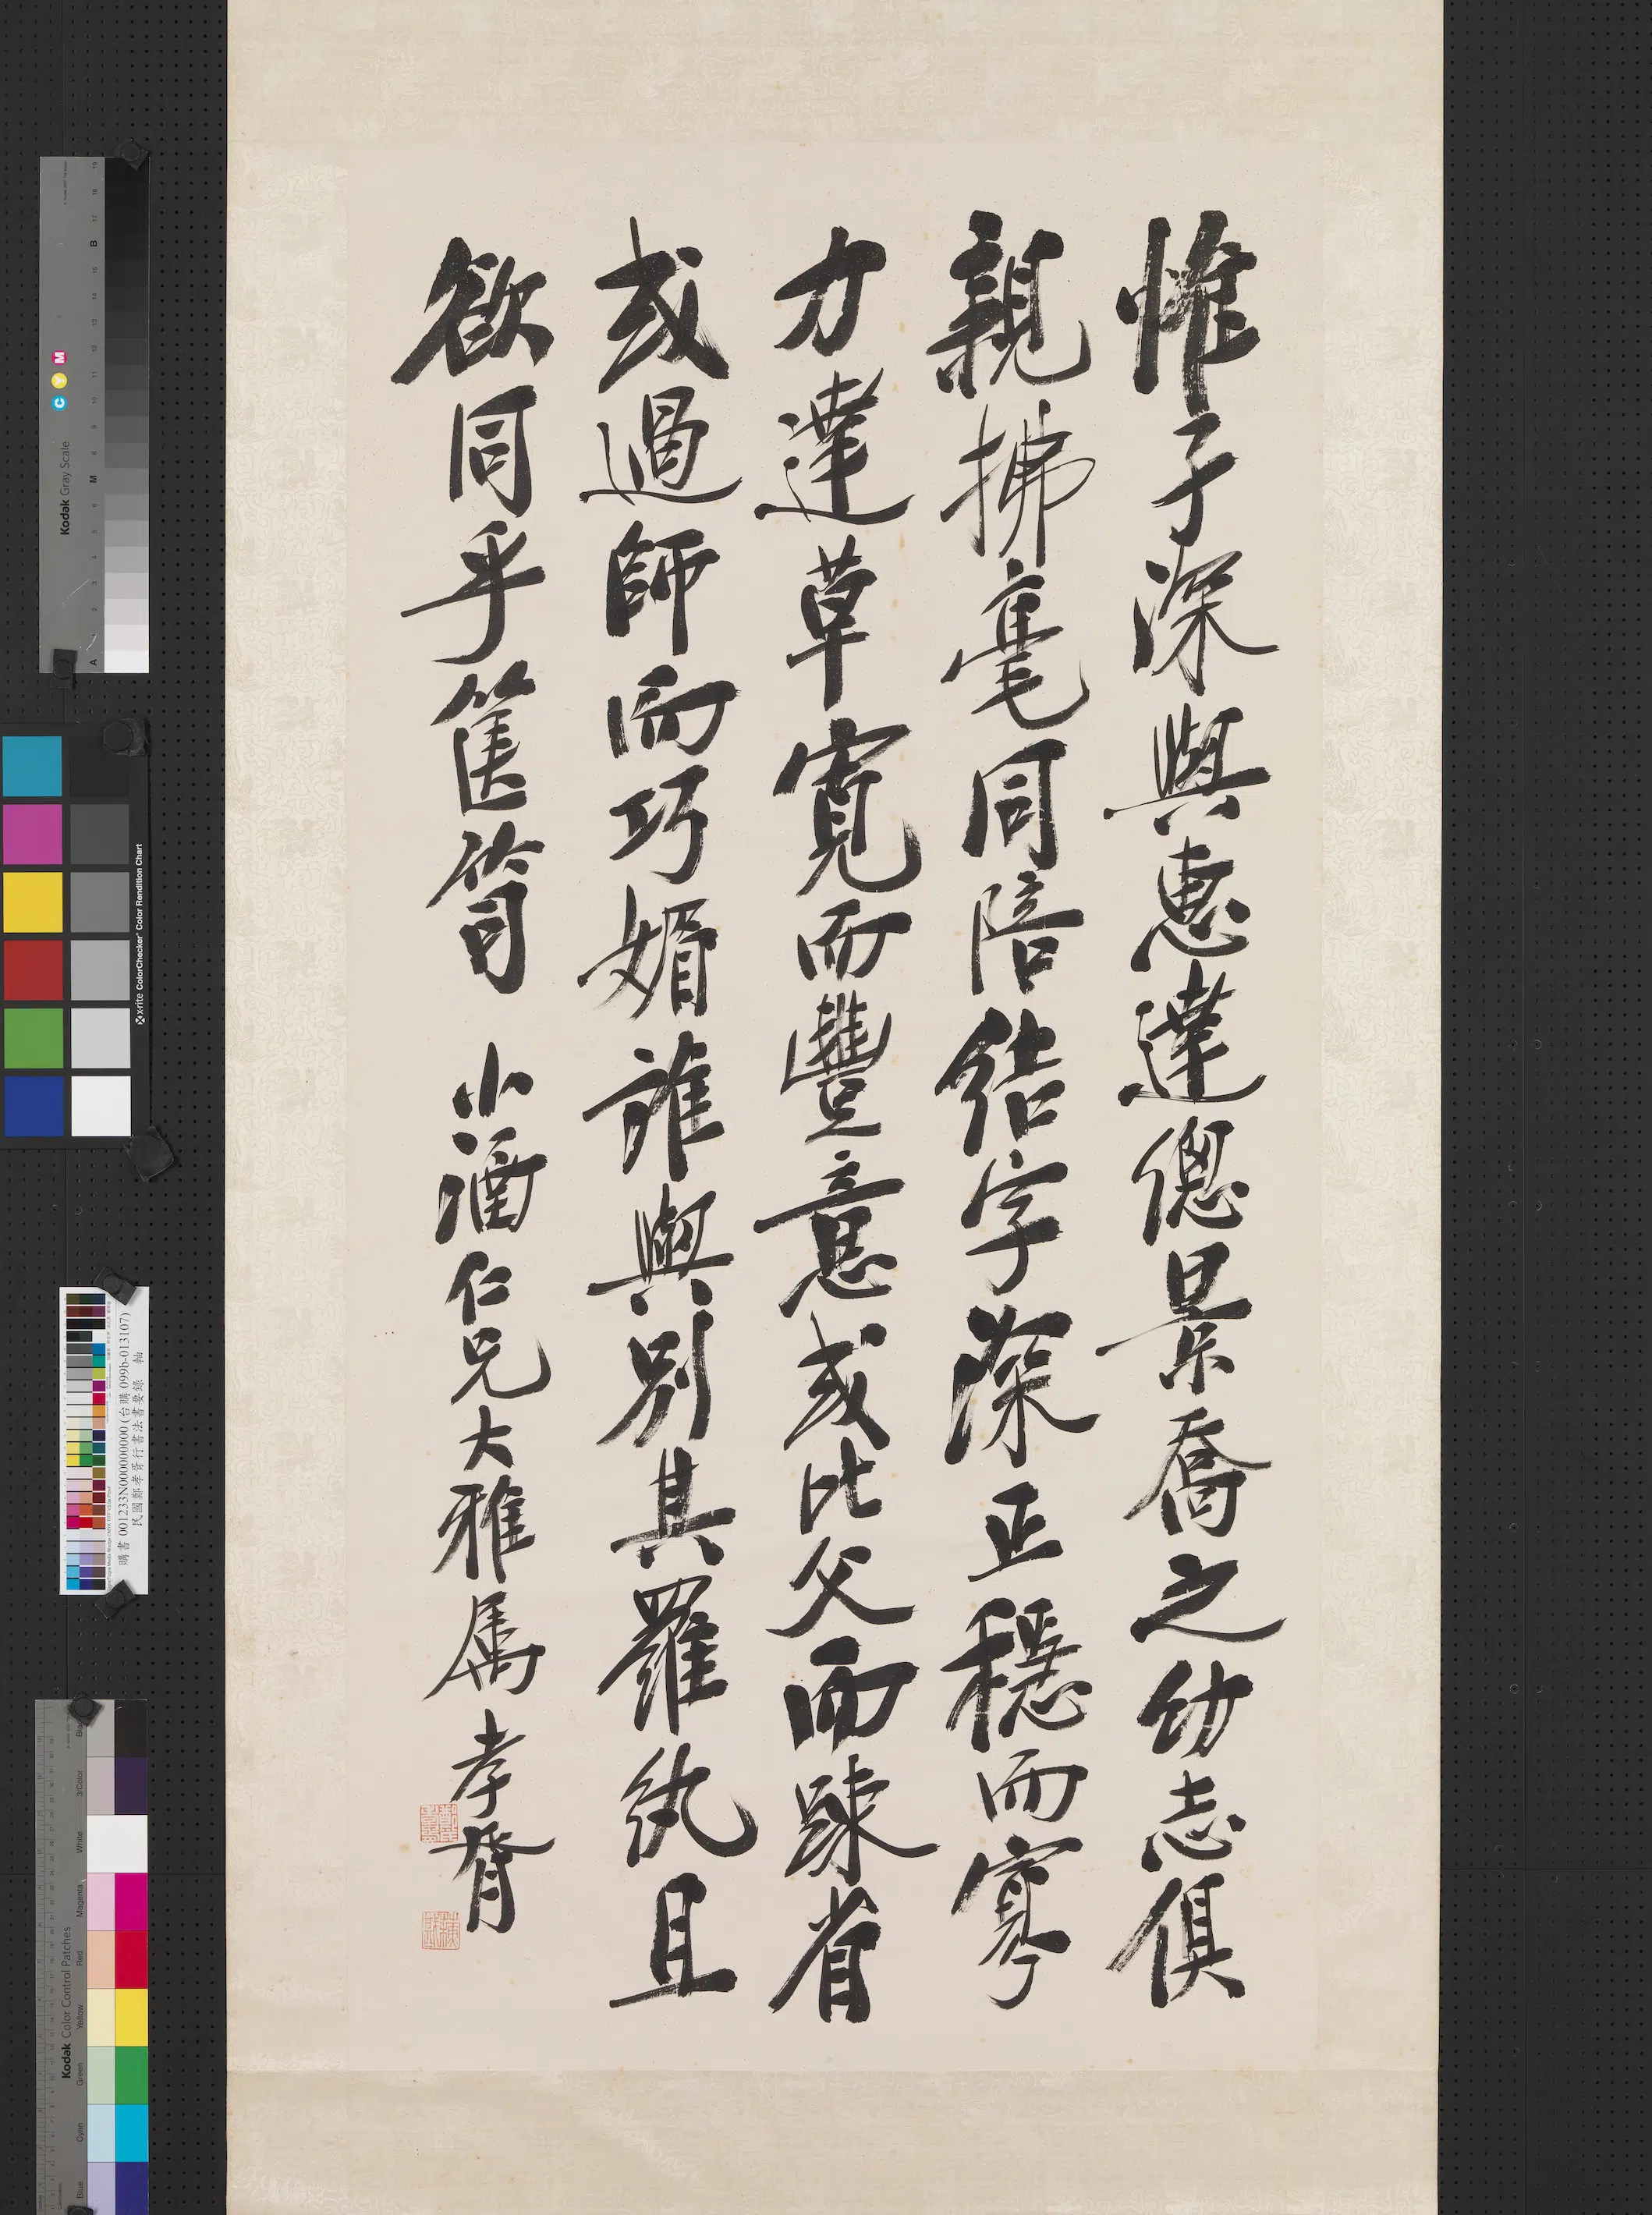 惟子深與惠達偲景喬之幼志俱
親拂毫同陪結字深正穩而寡
力達草寬而豐意或比父而疎省
或過師而巧媚誰與別其羅紈且
欲同乎篋笥 小湎仁兄大雅属 孝胥
Kodak Gray Scale
C Y M
A
M
B
x-rite ColorChecker Color Rendition Chart
購書 001233N000000000 (台購 099b-013107)
民國鄭孝胥行書法書要錄 軸
Kodak Color Control Patches
Blue
Cyan
Green
Yellow
Red
Magenta
White
3/Color
Black